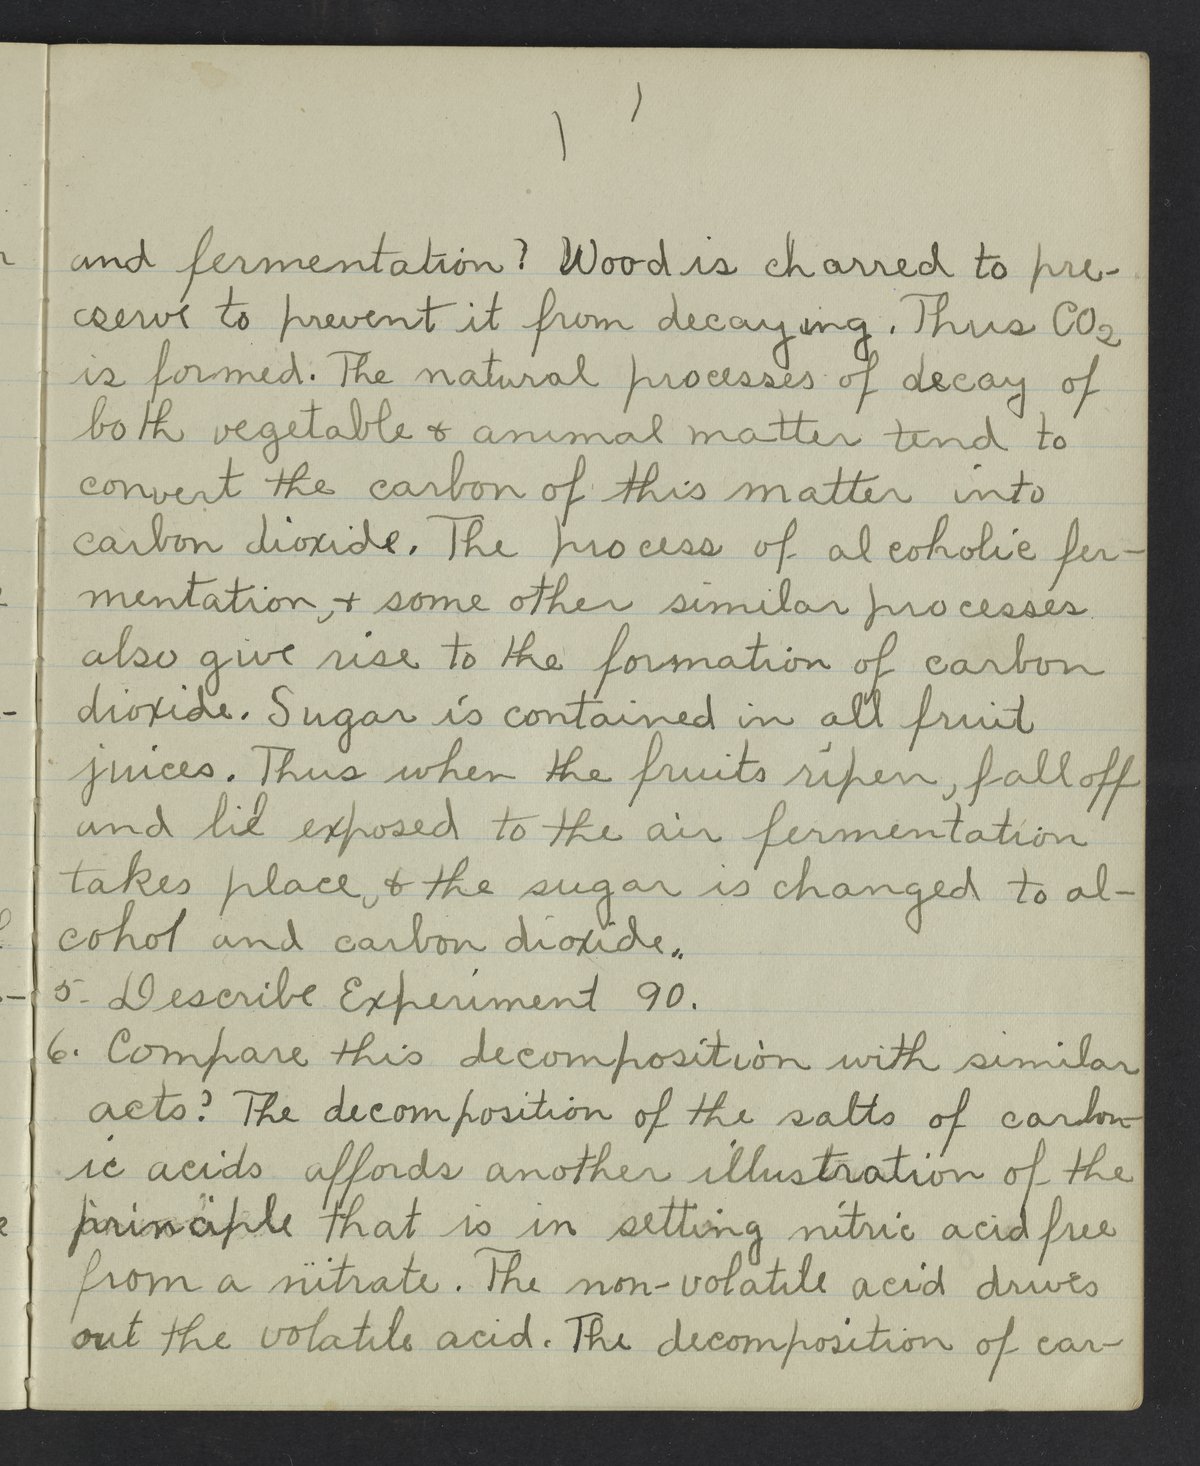 and fermentation? Wood is charred to pre-
cserve to prevent it from decaying. Thus CO2
is formed. The natural processes of decay of
both vegetable & animal matter tend to
convert the carbon of this matter into
carbon dioxide. The process of alcoholic fer-
mentation, & some other similar processes
also give rise to the formation of carbon
dioxide. Sugar is contained in all fruit
juices. Thus when the fruits ripen, fall off
and lie exposed to the air fermentation
takes place, & the sugar is changed to al-
cohol and carbon dioxide.
5- Describe Experiment 90.
6. Compare this decomposition with similar
acts? The decomposition of the salts of carbon-
ic acids affords another illustration of the
principle that is in setting nitric acid free
from a nitrate. The non-volatile acid drives
out the volatile acid. The decomposition of car-